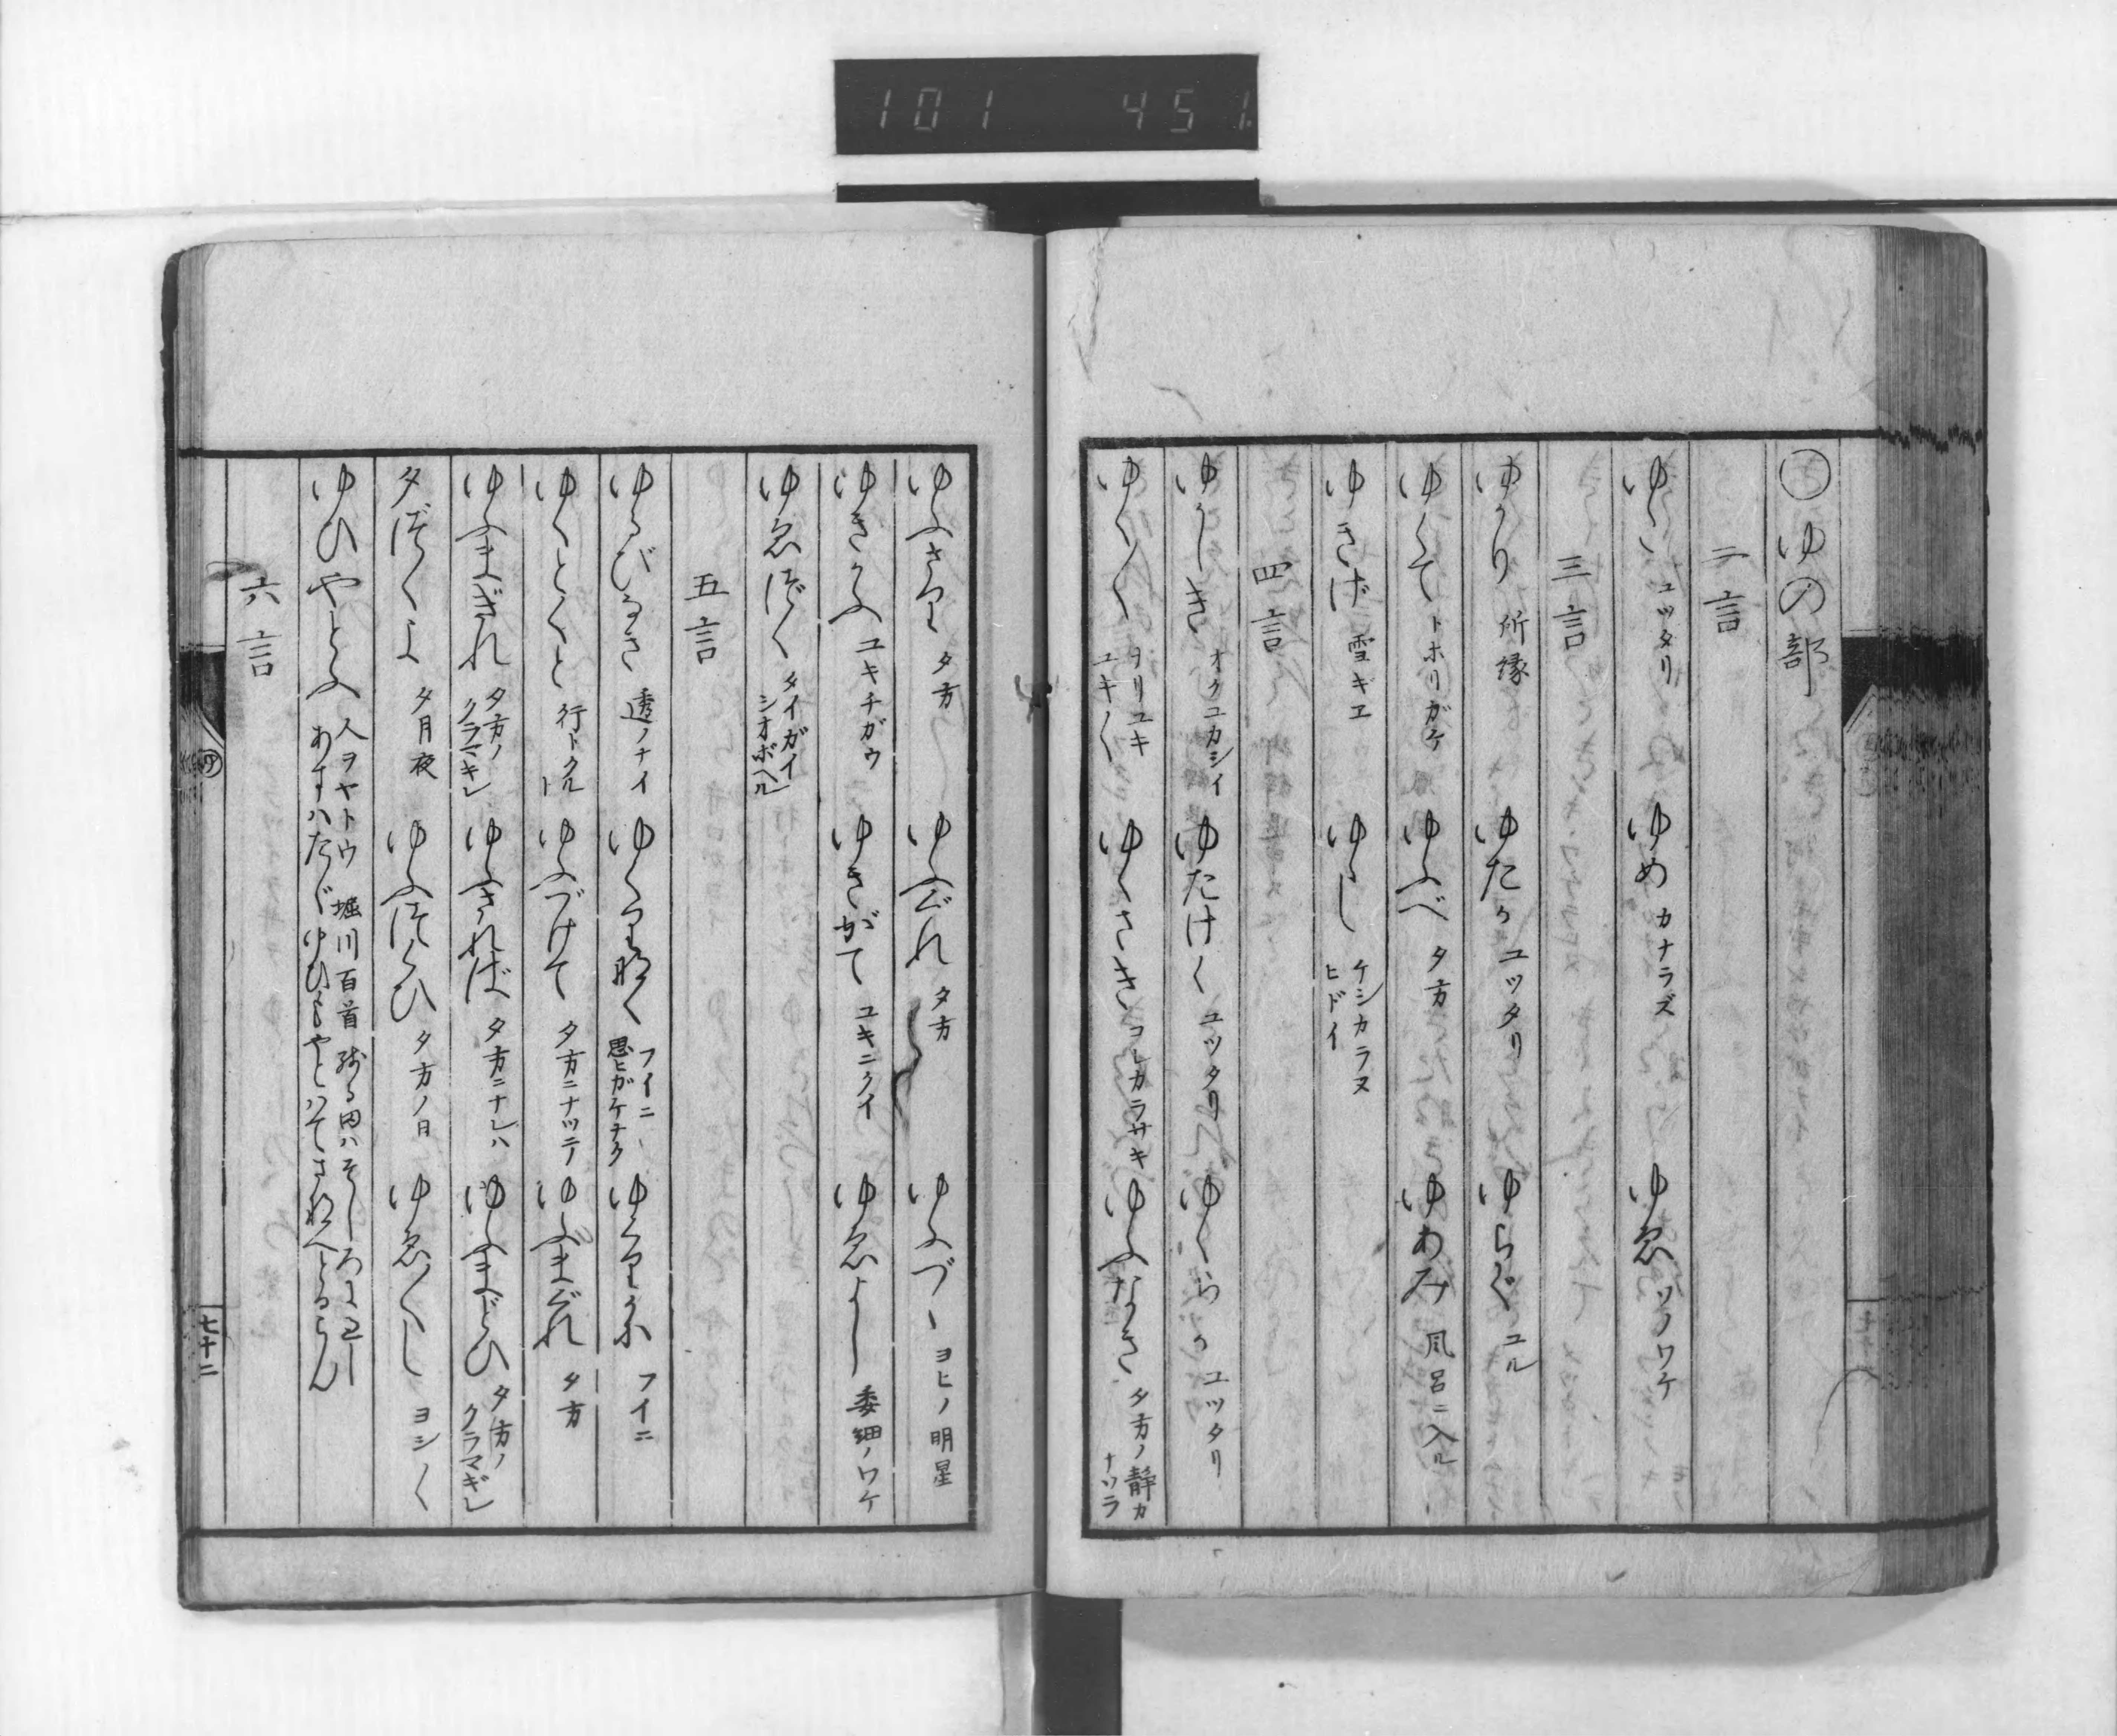 101 451
○ゆの部
二言
ゆゝ ユツタリ ゆめ カナラズ ゆゑ ソノワケ
三言
ゆかり 所縁 ゆたか ユツタリ ゆらぐ ユル
ゆくて トホリガケ ゆふべ 夕方 ゆあみ 風呂ニ入ル
ゆきげ 雪ギエ ゆゝし ケシカラヌ ヒドイ
四言
ゆかしき オクユカシイ ゆたけく ユツタリ ゆくらか ユツタリ
ゆく〳〵 ヲリユキ ユキ〳〵 ゆくさき コレカラサキ ゆふなぎ 夕方ノ静カ ナツラ
ゆふさり 夕方 ゆふぐれ 夕方 ゆふづゝ ヨヒノ明星
ゆきかふ ユキチガウ ゆきがて ユキニクイ ゆゑよし 委細ノワケ
ゆゑづく タイガイ シオボヘル
五言
ゆるびなき 透ノナイ ゆくりなく フイニ 思ヒガケナク ゆくりかに フイニ
ゆくとくと 行トクルト ゆふづけて 夕方ニナツテ ゆふまぐれ 夕方
ゆふまぎれ 夕方ノ クラマギレ ゆふされば 夕方ニナレハ ゆふまどひ 夕方ノ クラマギレ
夕づくよ 夕月夜 ゆふづくひ 夕方ノ日 ゆゑ〳〵し ヨシ〳〵
ゆひやとふ 人ヲヤトウ 堀川百首
六言
七十二